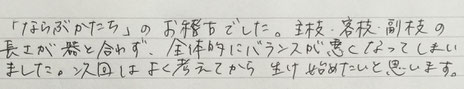 「ならぶかたち」のお稽古でした。主枝・客枝・副枝の
長さが器と合わず、全体的にバランスが悪くなってしまい
ました。次回はよく考えてから生け始めたいと思います。